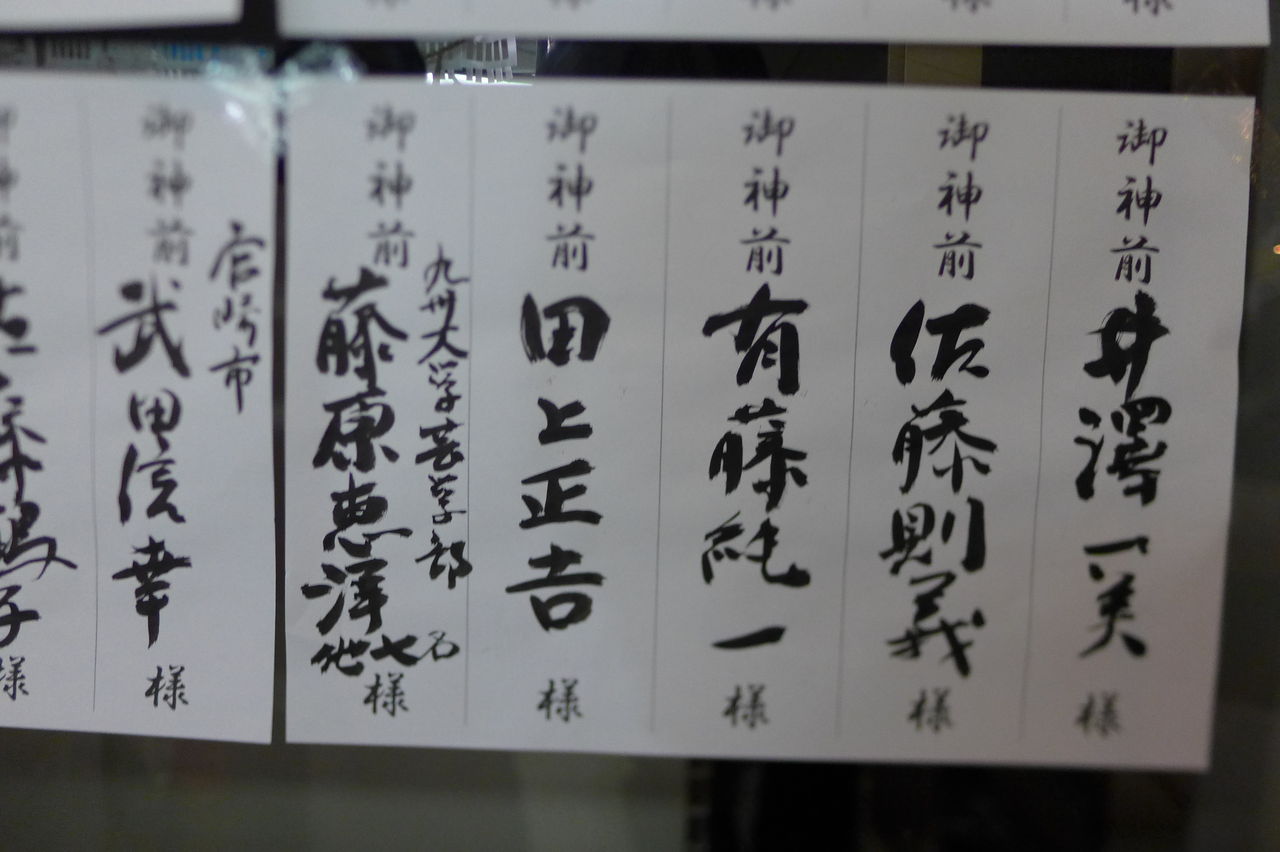 御神前 井澤一美 様
御神前 佐藤則義 様
御神前 有藤純一 様
御神前 田上正吉 様
九州大学芸学部
御神前 藤原恵洋 他七名 様
宮崎市
御神前 武田信幸 様
御神前 子 様
様 様 様 様 様